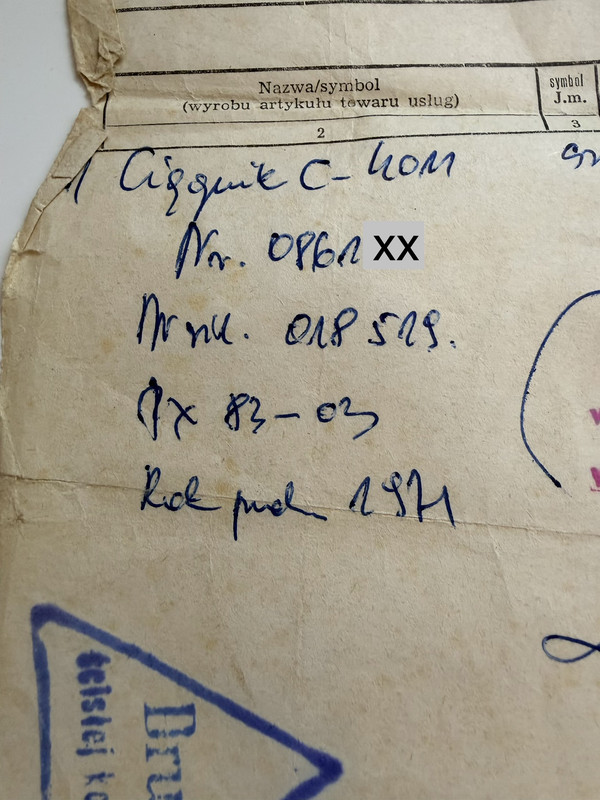 Nazwa/symbol
(wyrobu artykułu towaru usług)
symbol
J.m.
2
3
1 Ciągnik C-4011
Nr. 0861XX
Nr sil. 018519.
PX 83-03
Rok prod. 1971
ścisłej
Dru